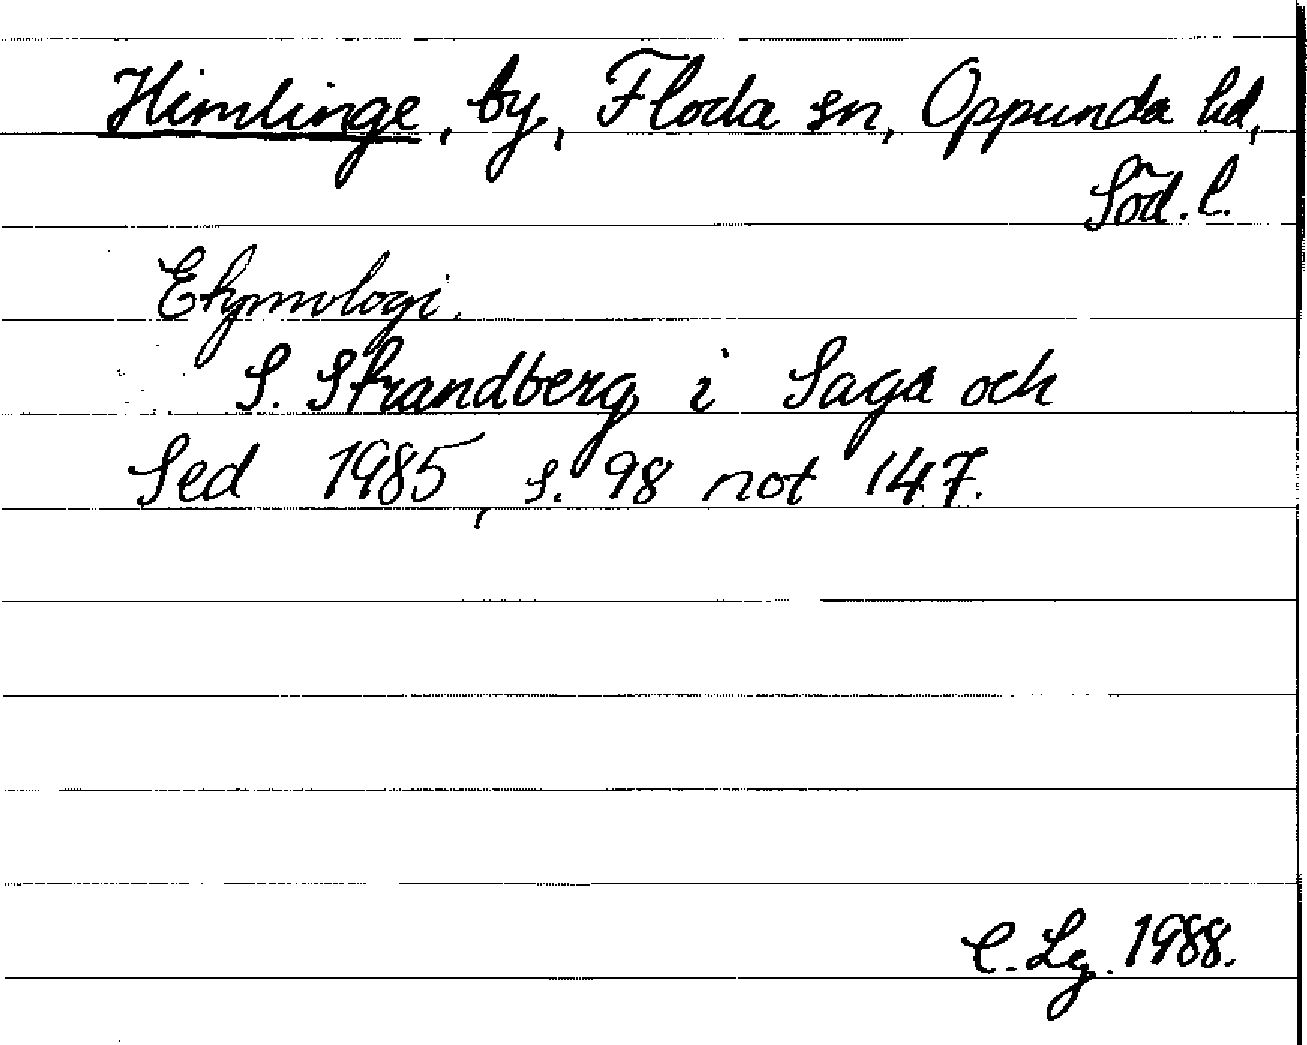 Himlinge, by, Floda sn, Oppunda hd,
Söd. l.
Etymologi.
S. Strandberg i Saga och
Sed 1985, s. 98 not 147.
C. Lg. 1988.